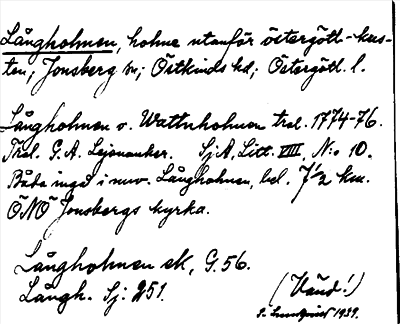 Långholmen, holme utanför östergötl-kus-
ten; Jonsberg sn; Östkinds hd; Östergötl. l.
Långholmen o. Wattuholmen trol. 1774-76.
Thol. G. A. Lejonanker. Sj A, Litt. VIII, N:o 10.
Båda ingå i nuv. Långholmen, bel. 7 1/2 km.
ÖNÖ Jonsbergs kyrka.
Långholmen ek, G. 56.
Långh. Sj. 251.
(Vänd!)
S. Lundqvist 1939.